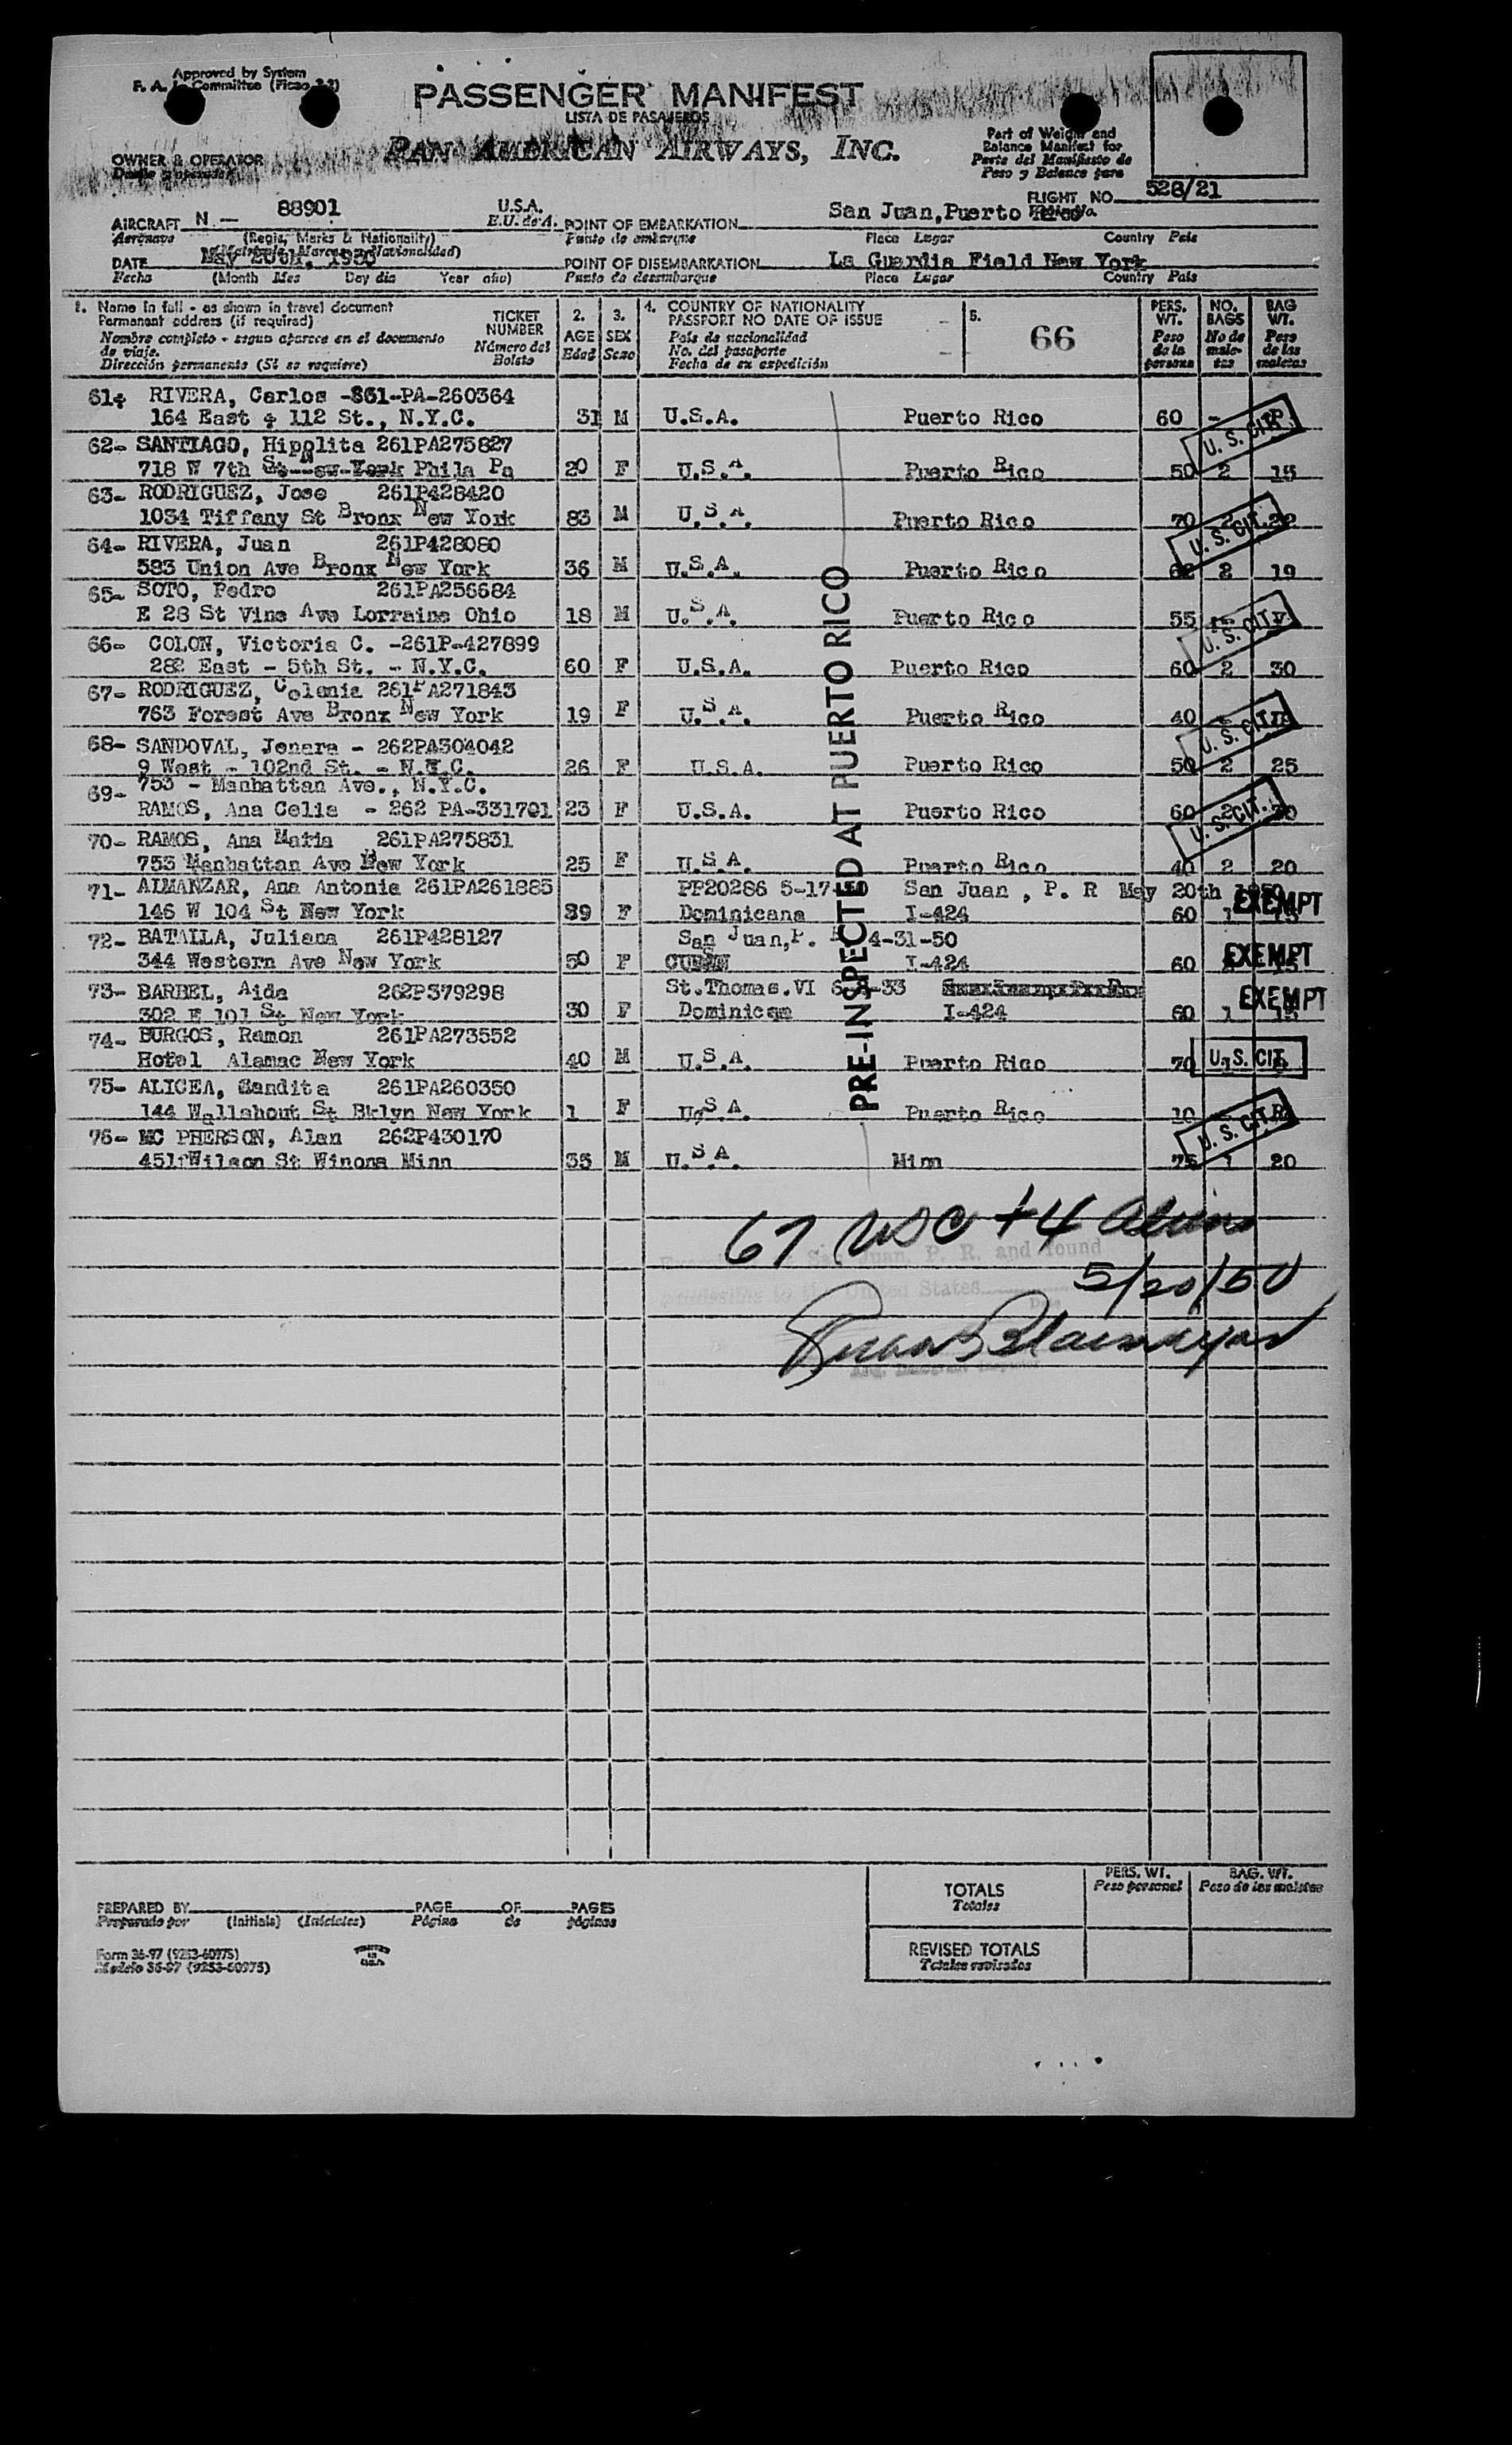 Approved by System
F. A. L. Committee (Ficao 2-2)
PASSENGER MANIFEST
LISTA DE PASAJEROS
PAN AMERICAN AIRWAYS, INC.
OWNER & OPERATOR
Part of Weight and
Balance Manifest for
Parte del Manifiesto de
Peso y Balance para
FLIGHT NO. 528/21
AIRCRAFT N.— 88901 U.S.A. POINT OF EMBARKATION San Juan, Puerto Rico
Aeronave (Regis, Marks & Nationality) E.U. de A. Punto de embarque Place Lugar Country Pais
DATE May 20th, 1950 POINT OF DISEMBARKATION La Guardia Field New York
Fecha (Month Mes Day dia Year año) Punto de desembarque Place Lugar Country Pais
1. Name in full - as shown in travel document
Permanent address (if required)
Nombre completo - segun aparece en el documento
de viaje.
Dirección permanente (Si se requiere)
TICKET
NUMBER
Número del
Boleto
2.
AGE
Edad
3.
SEX
Sexo
4. COUNTRY OF NATIONALITY
PASSPORT NO DATE OF ISSUE
Pais de nacionalidad
No. del pasaporte
Fecha de su expedición
5.
66
PERS.
WT.
Peso
de la
persona
NO.
BAGS
No de
male-
tas
BAG
WT.
Peso
de las
maletas
61- RIVERA, Carlos -261-PA-260364
164 East - 112 St., N.Y.C. 31 M U.S.A. Puerto Rico 60 -
U. S. CIT.
62- SANTIAGO, Hipolita 261PA275827
718 W 7th St New York Phila Pa 20 F U.S.A. Puerto Rico 50 2 15
63- RODRIGUEZ, Jose 261P428420
1034 Tiffany St Bronx New York 83 M U.S.A. Puerto Rico 70 2 22
U. S. CIT.
64- RIVERA, Juan 261P428080
583 Union Ave Bronx New York 36 M U.S.A. Puerto Rico 62 2 19
65- SOTO, Pedro 261PA256684
E 28 St Vine Ave Lorraine Ohio 18 M U.S.A. Puerto Rico 55
U. S. CIT.
66- COLON, Victoria C. -261P-427899
282 East - 5th St. - N.Y.C. 60 F U.S.A. Puerto Rico 60 2 30
67- RODRIGUEZ, Celenia 261PA271843
763 Forest Ave Bronx New York 19 F U.S.A. Puerto Rico 40
U. S. CIT.
68- SANDOVAL, Jenara - 262PA304042
9 West - 102nd St. - N.Y.C. 26 F U.S.A. Puerto Rico 50 2 25
69- 753 - Manhattan Ave., N.Y.C.
RAMOS, Ana Celia - 262 PA-331701 23 F U.S.A. Puerto Rico 60 2 30
U. S. CIT.
70- RAMOS, Ana Maria 261PA275831
753 Manhattan Ave New York 25 F U.S.A. Puerto Rico 40 2 20
71- ALMANZAR, Ana Antonia 261PA261885 PP20286 5-17- San Juan , P. R May 20th 1950
146 W 104 St New York 39 F Dominicana I-424 60 1 15
EXEMPT
72- BATALLA, Juliana 261P428127 San Juan,P. R 4-31-50
344 Western Ave New York 50 F I-424 60
EXEMPT
73- BARBEL, Aida 262P379298 St.Thomas.VI
302 E 101 St New York 30 F Dominican I-424 60 1 15
EXEMPT
74- BURGOS, Ramon 261PA273552
Hotel Alamac New York 40 M U.S.A. Puerto Rico 70
U. S. CIT.
75- ALICEA, Sandita 261PA260350
144 Wallahout St Bklyn New York 1 F U.S.A. Puerto Rico 10
U. S. CIT.
76- MC PHERSON, Alan 262P430170
451 Wilson St Winona Minn 35 M U.S.A. Minn 75 1 20
PRE-INSPECTED AT PUERTO RICO
67 USC + 4 aliens
San Juan, P. R. and found
United States
Date
5/20/50
TOTALS
Totales
PERS. WT.
Peso personal
BAG. WT.
Peso de las maletas
REVISED TOTALS
Totales revisados
PREPARED BY PAGE OF PAGES
Preparado por (Initials) (Iniciales) Página de páginas
Form 36-97 (9253-60975)
Modelo 36-97 (9253-60975)